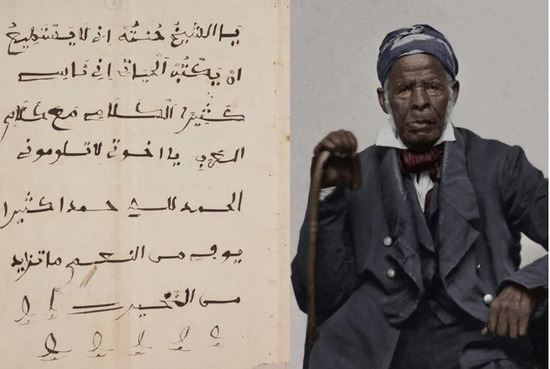 يا الشيخ حُنتَه اني لا يستطيع
ان يكتب الحياتي اني ناسي
كثيرا الكلام مع كلام
العربي يا اخوني لا تلوموني
الحمد لله حمدا كثيرا
يوف من النعم ما تزايد
من الخيرت